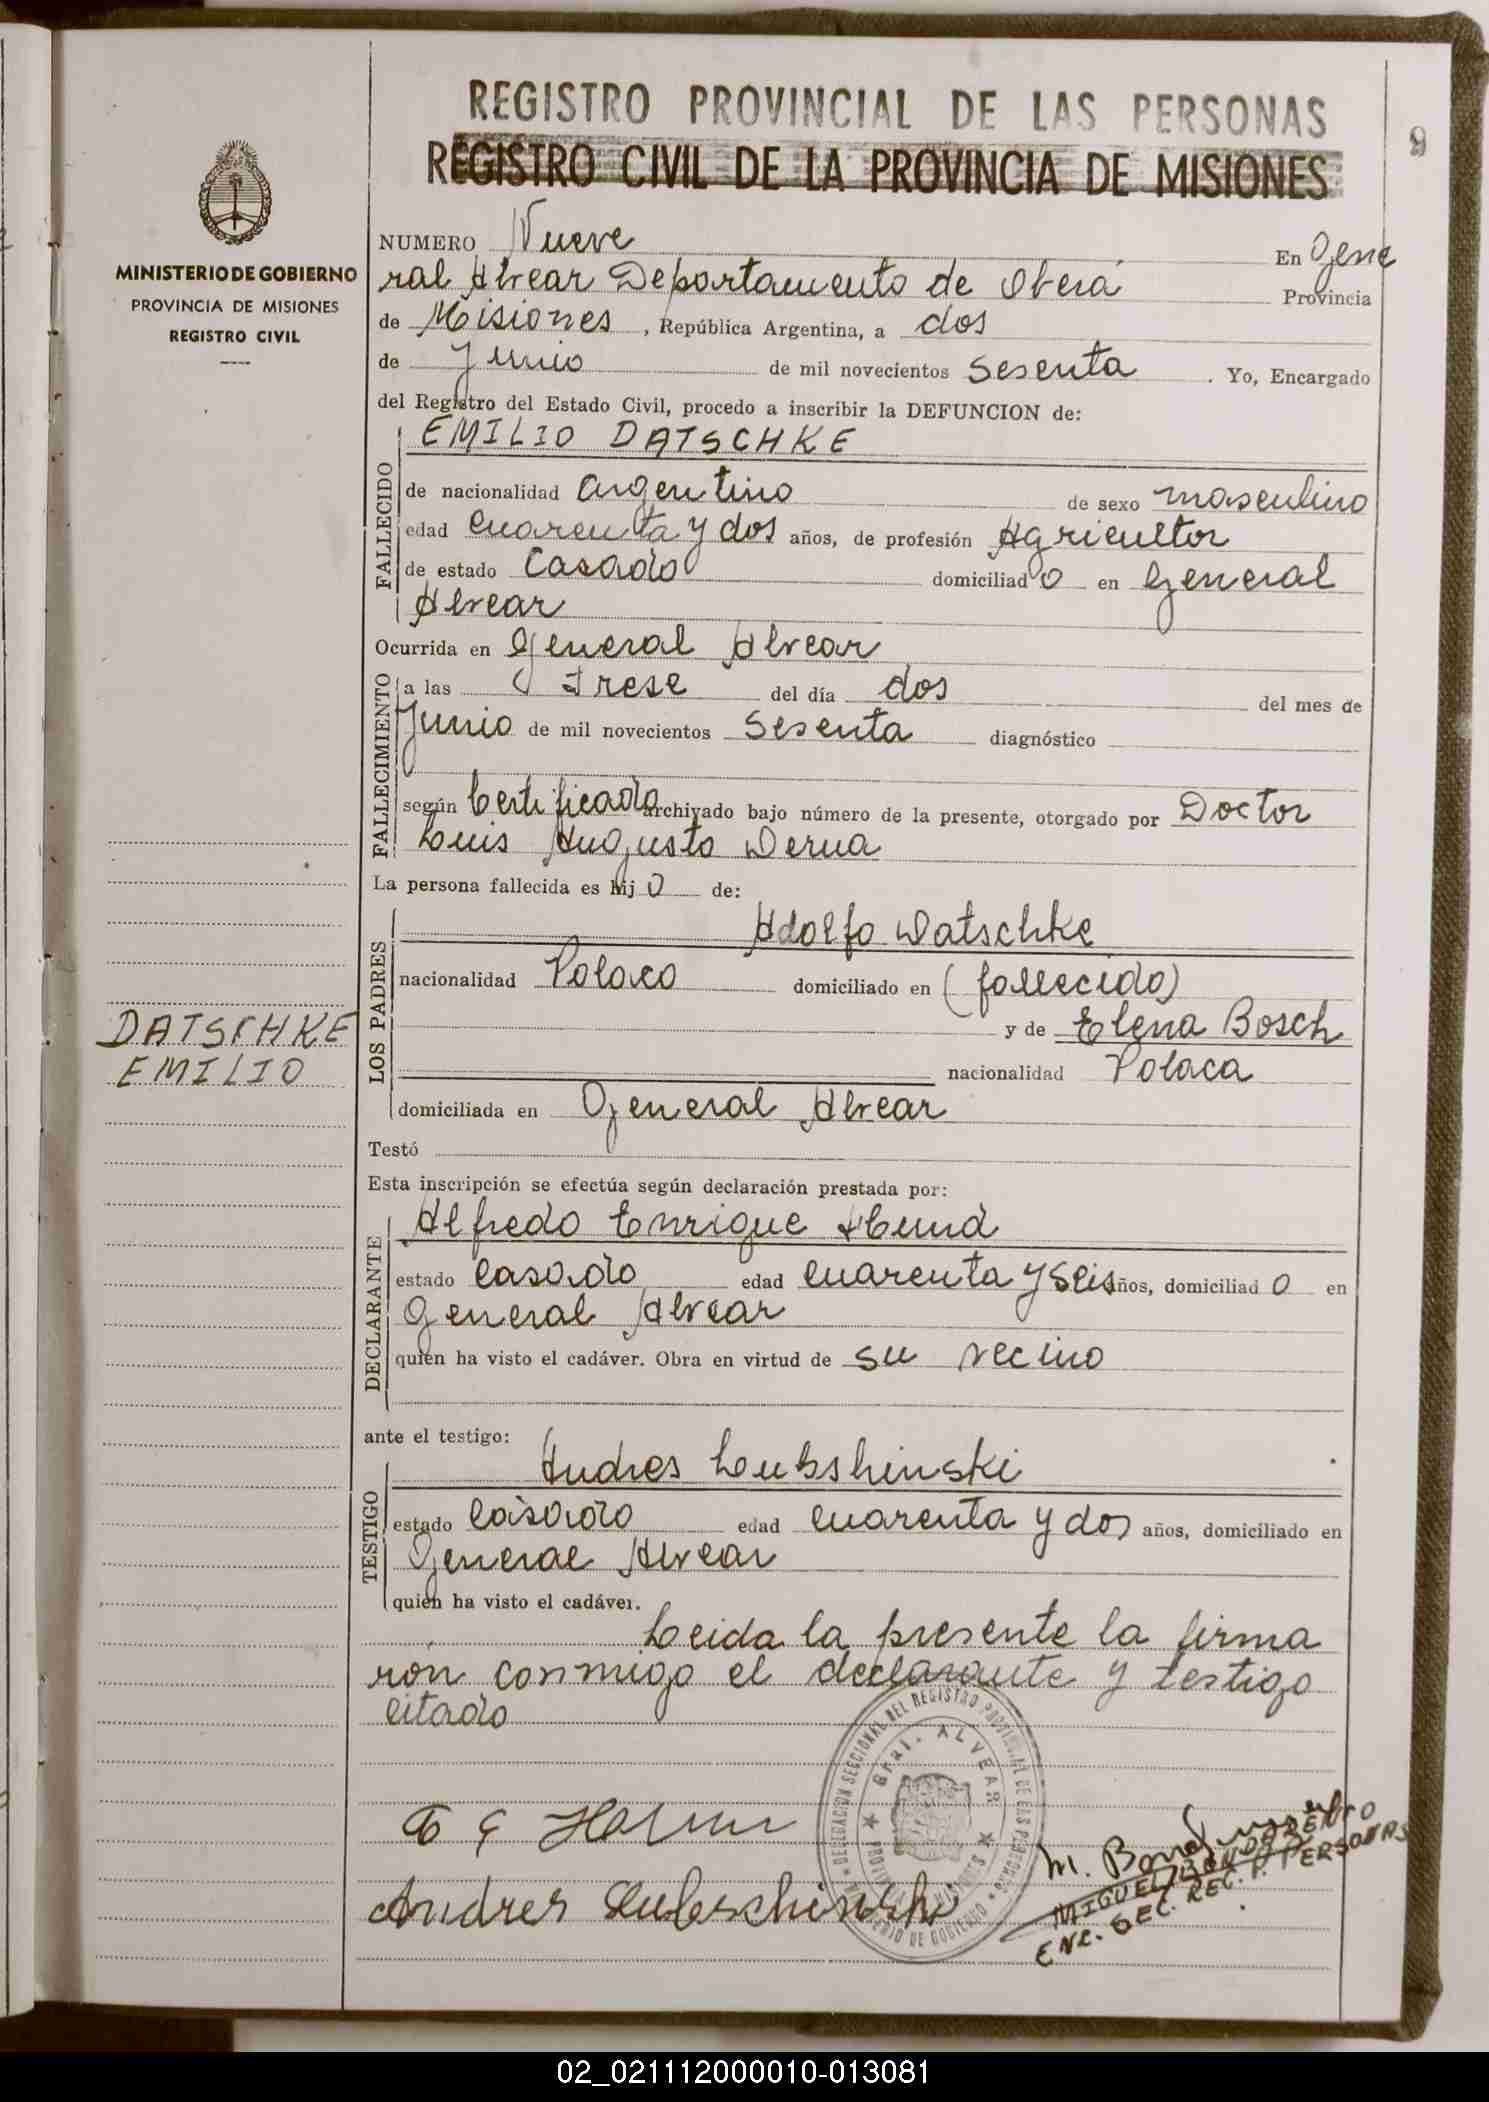 REGISTRO PROVINCIAL DE LAS PERSONAS
REGISTRO CIVIL DE LA PROVINCIA DE MISIONES
9
MINISTERIO DE GOBIERNO
PROVINCIA DE MISIONES
REGISTRO CIVIL
NUMERO Nueve En Gene
ral Alvear Departamento de Oberá Provincia
de Misiones, República Argentina, a dos
de Junio de mil novecientos Sesenta. Yo, Encargado
del Registro del Estado Civil, procedo a inscribir la DEFUNCION de:
FALLECIDO
EMILIO DATSCHKE
de nacionalidad argentino de sexo masculino
edad cuarenta y dos años, de profesión Agricultor
de estado Casado domiciliado en General
Alvear
FALLECIMIENTO
Ocurrida en General Alvear
a las Trese del día dos del mes de
Junio de mil novecientos Sesenta diagnóstico
según Certificado archivado bajo número de la presente, otorgado por Doctor
Luis Augusto Derna
La persona fallecida es hijo de:
LOS PADRES
Adolfo Datschke
nacionalidad Polaco domiciliado en (fallecido)
y de Elena Bosch
nacionalidad Polaca
domiciliada en General Alvear
DATSCHKE
EMILIO
Testó
Esta inscripción se efectúa según declaración prestada por:
DECLARANTE
Alfredo Enrique
estado Casado edad cuarenta y seis años, domiciliado en
General Alvear
quien ha visto el cadáver. Obra en virtud de su vecino
ante el testigo:
TESTIGO
Andres Lubshinski
estado Casado edad cuarenta y dos años, domiciliado en
General Alvear
quien ha visto el cadáver.
Leida la presente la firma
ron conmigo el declarante y testigo
citado
DELEGACION SECCIONAL DEL REGISTRO PROVINCIAL DE LAS PERSONAS
GRAL. ALVEAR
PROVINCIA DE MISIONES
MINISTERIO DE GOBIERNO
Andres Lubschinski
M.
MIGUEL
ENC. SEC. REG. P. PERSONAS
02_021112000010-013081